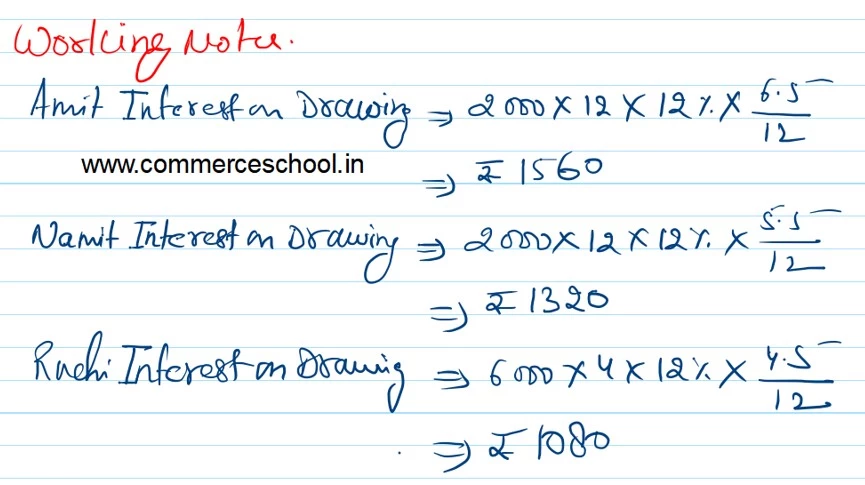 Working Notes.
Amit Interest on Drawing ⇒ 2000 × 12 × 12% × 6.5/12
www.commerceschool.in
⇒ ₹ 1560
Namit Interest on Drawing ⇒ 2000 × 12 × 12% × 5.5/12
⇒ ₹ 1320
Ruchi Interest on Drawing ⇒ 6000 × 4 × 12% × 4.5/12
⇒ ₹ 1080